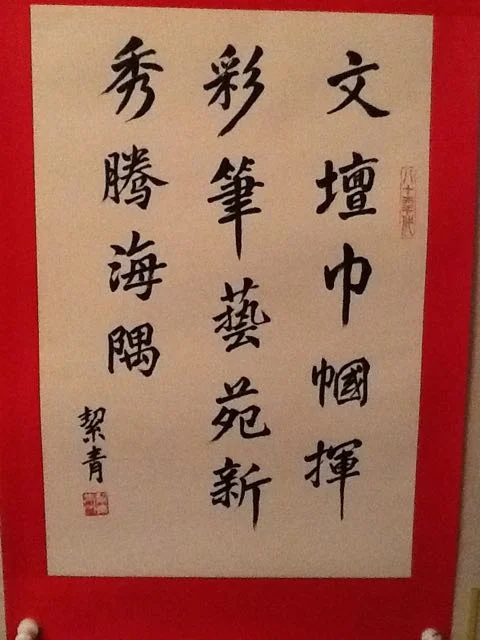 文壇巾幗揮
彩筆藝苑新
秀騰海隅
絜青